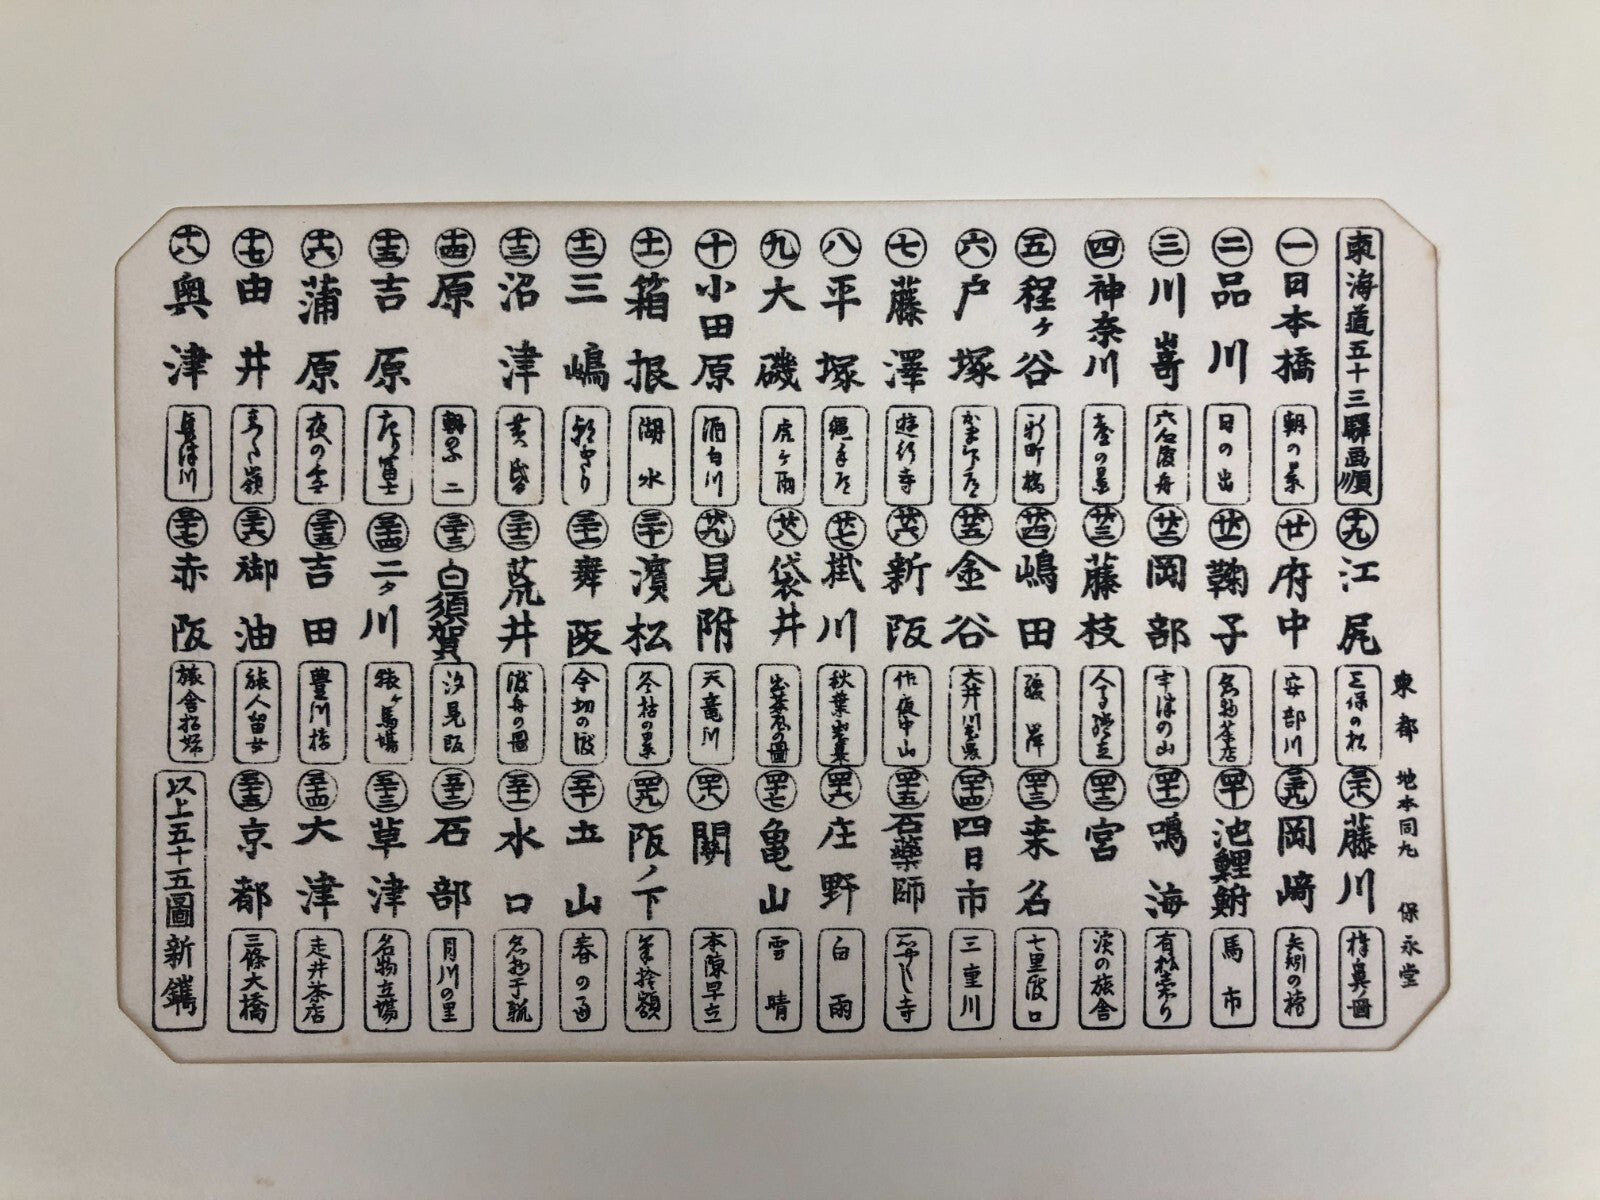 東海道五十三驛画順
一 日本橋 朝の景
二 品川 日の出
三 川嵜 六合渡舟
四 神奈川 臺の景
五 程ヶ谷 新町橋
六 戸塚
七 藤澤 遊行寺
八 平塚 縄手道
九 大磯 虎ヶ雨
十 小田原 酒匂川
十一 箱根 湖水
十二 三嶋 朝きり
十三 沼津 黄昏
十四 原 朝の不二
十五 吉原 左り冨士
十六 蒲原 夜の雪
十七 由井
十八 奥津 興津川
十九 江尻 三保の松
廿 府中 安部川
廿一 鞠子 名物茶店
廿二 岡部 宇津の山
廿三 藤枝 人馬継立
廿四 嶋田 駿岸
廿五 金谷 大井川
廿六 新阪 佐夜中山
廿七 掛川 秋葉
廿八 袋井 出茶屋の圖
廿九 見附 天竜川
三十 濱松 冬枯の景
三十一 舞阪 今切の渡
三十二 荒井 渡舟の圖
三十三 白須賀 汐見阪
三十四 二タ川 猿ヶ馬場
三十五 吉田 豊川橋
三十六 御油 旅人留女
三十七 赤阪 旅舎招婦
三十八 藤川 棒鼻ノ圖
三十九 岡﨑 矢矧の橋
四十 池鯉鮒 馬市
四十一 鳴海 有松
四十二 宮
四十三 桒名 七里渡口
四十四 四日市 三重川
四十五 石藥師 石やくし寺
四十六 庄野 白雨
四十七 亀山 雪晴
四十八 關 本陣早立
四十九 阪ノ下 筆捨嶺
五十 土山 春の雨
五十一 水口 名物干瓢
五十二 石部 目川の里
五十三 草津 名物立場
五十四 大津 走井茶店
五十五 京都 三條大橋
以上五十五圖新鐫
東都 地本同九 保永堂